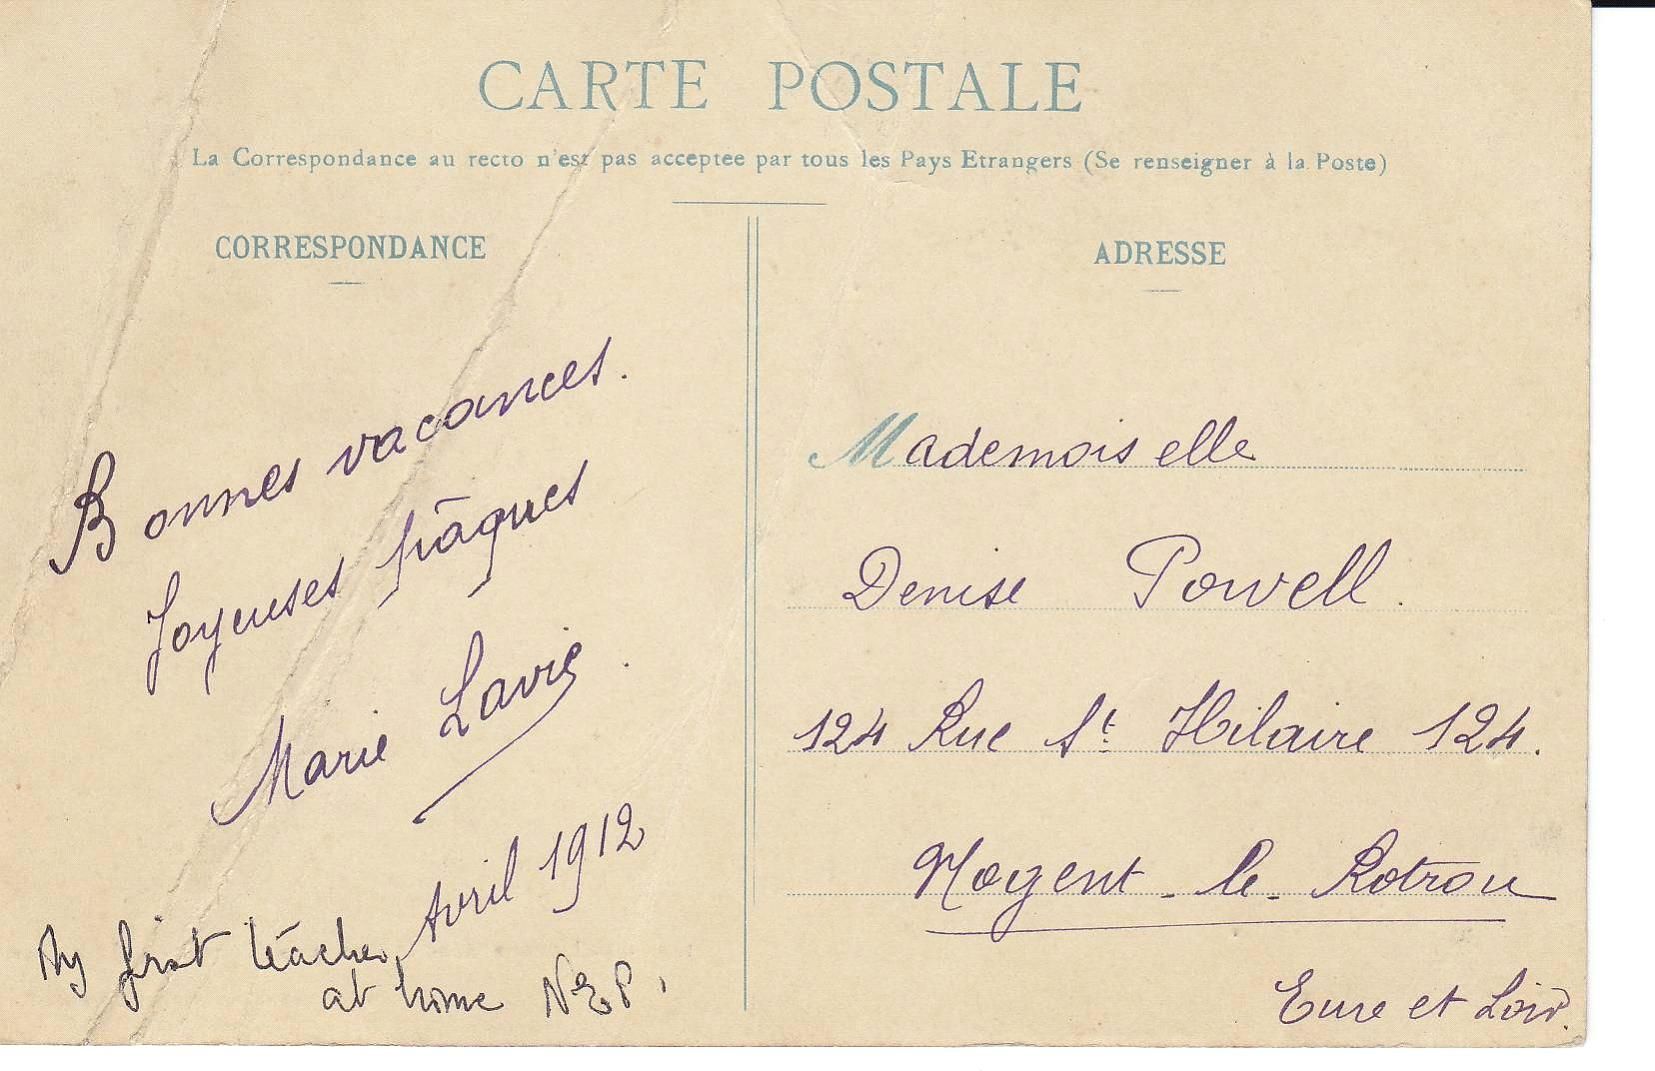 CARTE POSTALE
La Correspondance au recto n'est pas acceptee par tous les Pays Etrangers (Se renseigner à la Poste)
CORRESPONDANCE
Bonnes vacances.
Joyeuses pâques
Marie Lavie
Avril 1912
My first teacher
at home N.E.P.
ADRESSE
Mademoiselle
Denise Powell.
124 Rue St. Hilaire 124.
Nogent-le-Rotrou
Eure et Loir.